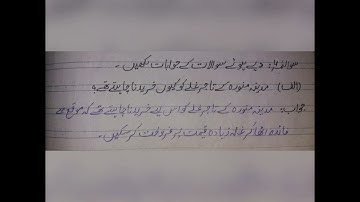 سوال نمبر 4: دیے ہوئے سوالات کے جوابات لکھیں۔
(الف) مدینہ منورہ کے تاجر غلے کو کیوں خریدنا چاہتے تھے؟
جواب: مدینہ منورہ کے تاجر غلے کو اس لیے خریدنا چاہتے تھے کہ موقع سے
فائدہ اٹھا کر غلہ زیادہ قیمت پر فروخت کر سکیں۔